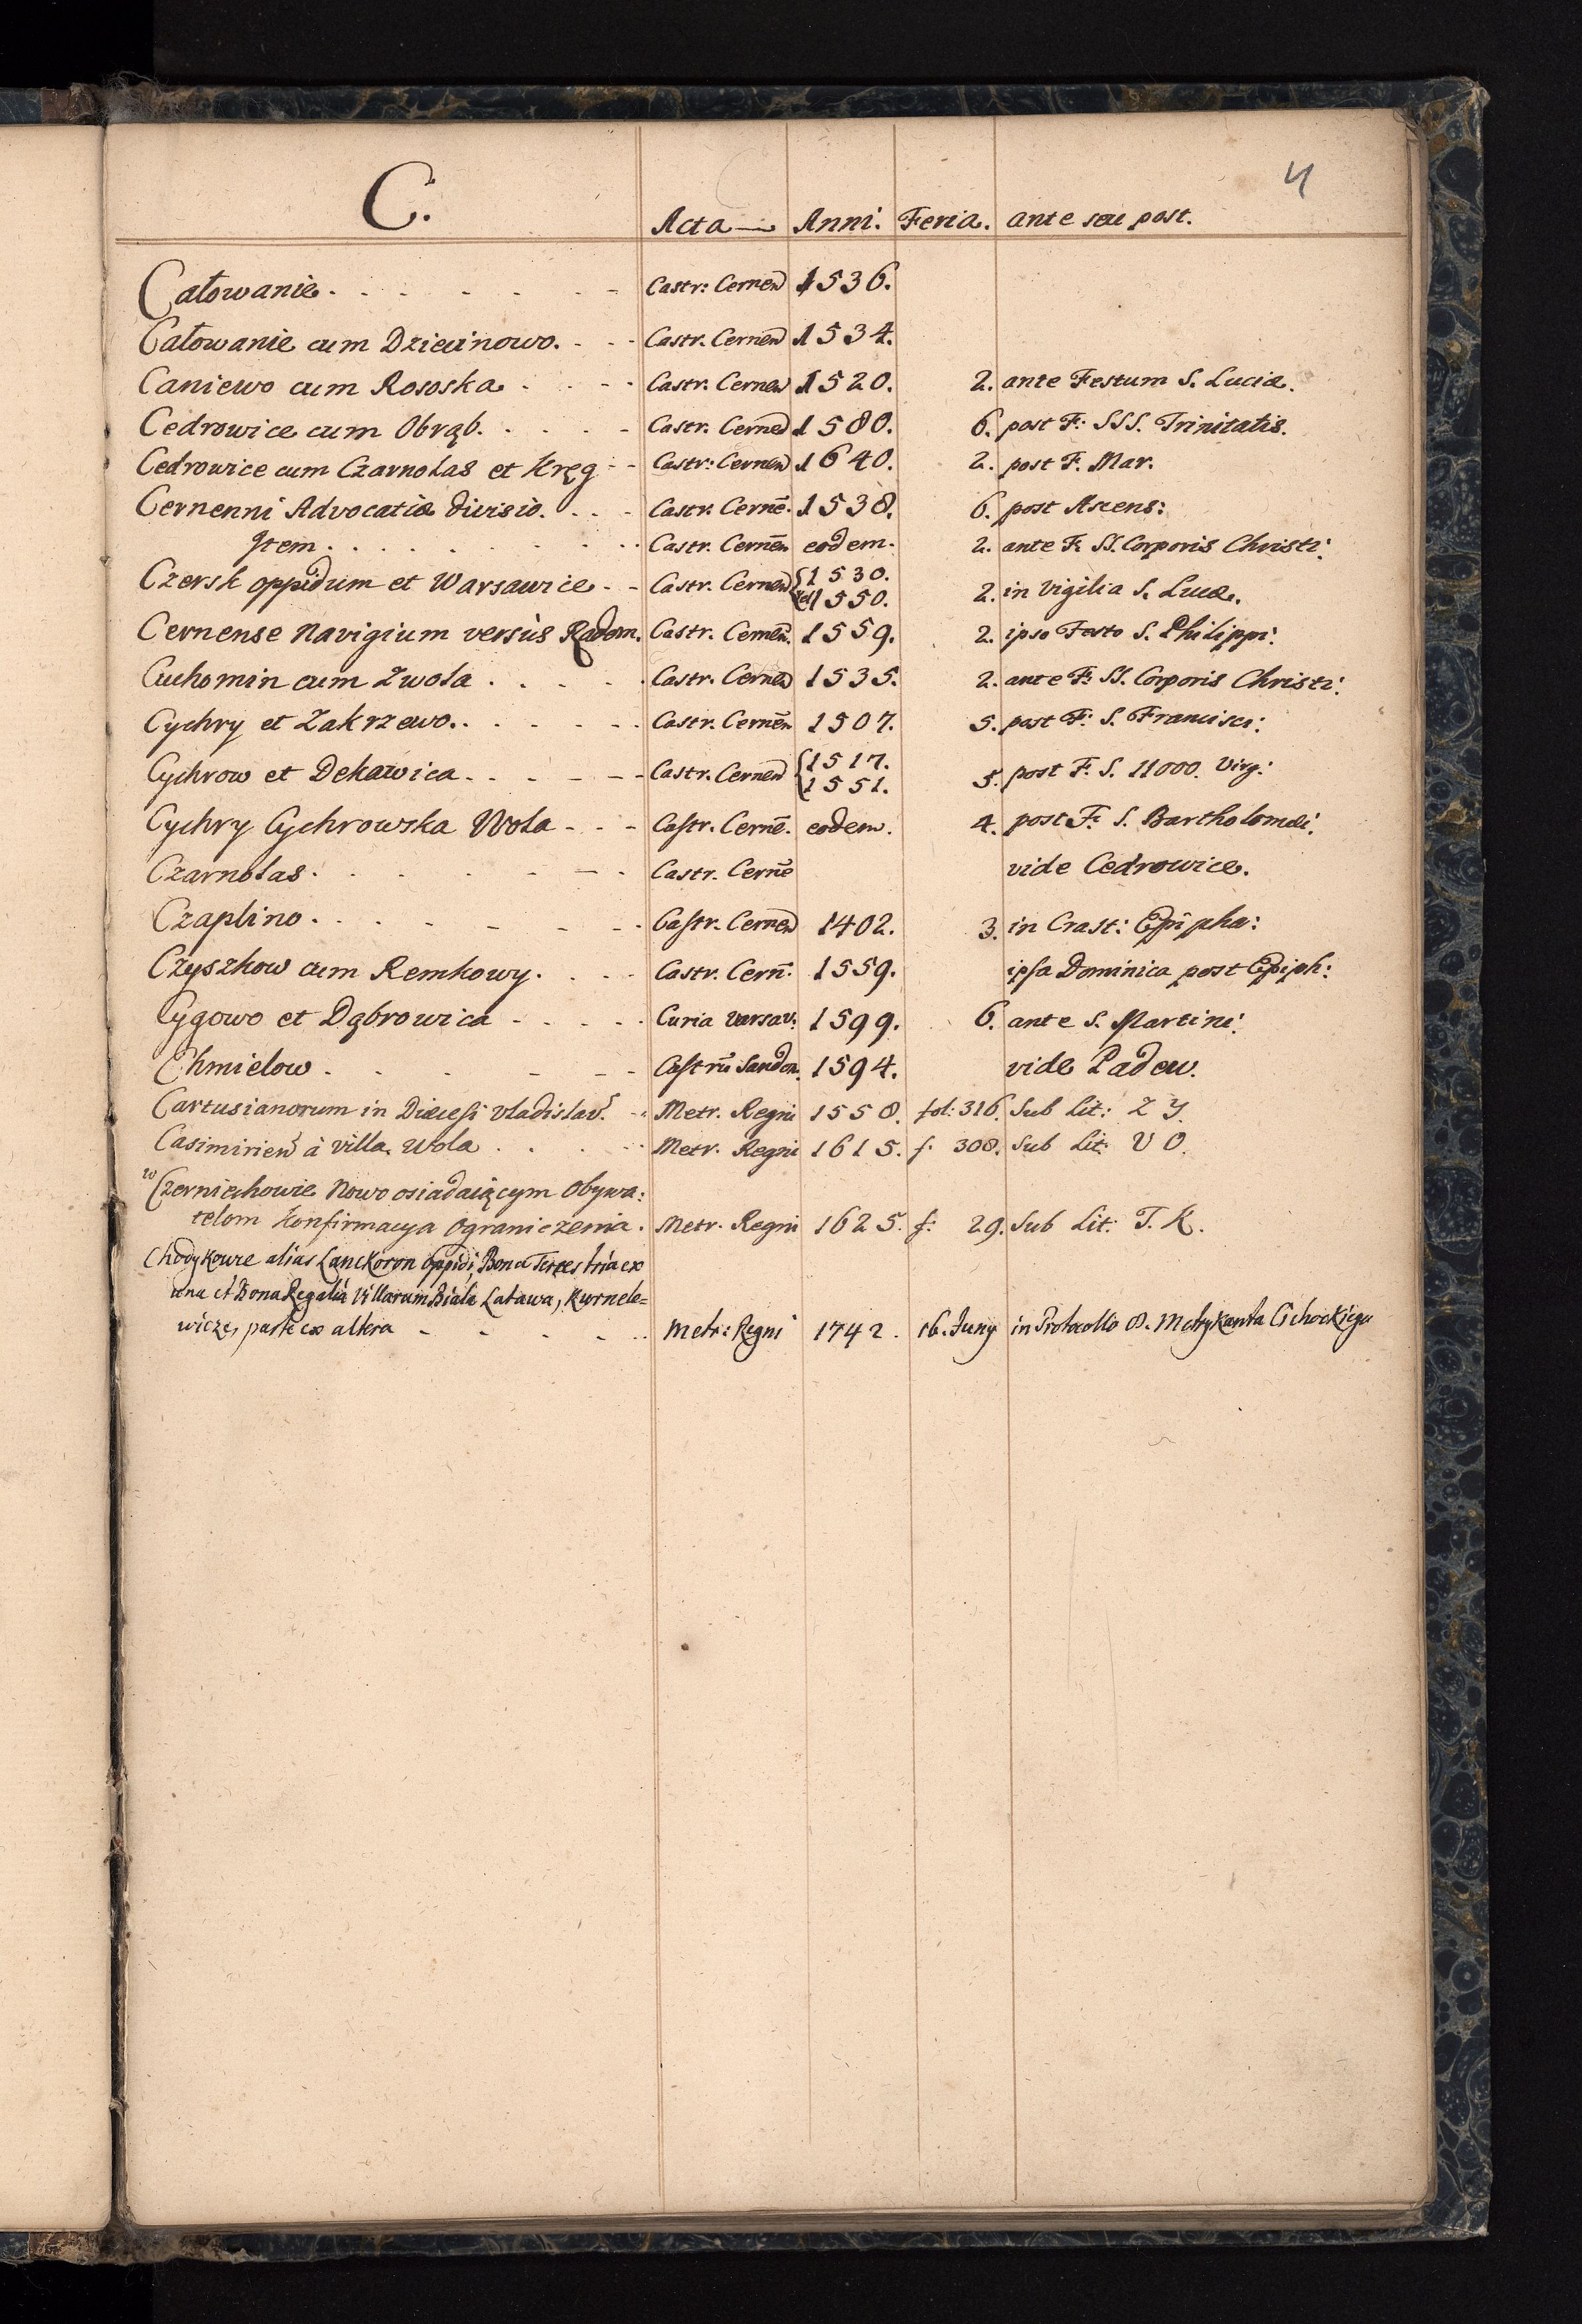 4
C. Acta Anni. Feria. ante seu post.
Całowanie Castr: Cernen 1536.
Całowanie cum Dziecinowo. Castr. Cernen 1534.
Caniewo cum Rososka Castr. Cernen 1520. 2. ante Festum S. Luciæ.
Cedrowice cum Obrąb. Castr. Cerned 1580. 6. post F: SSS. Trinitatis.
Cedrowice cum Czarnolas et Kręg Castr: Cernen 1640. 2. post F. Mar.
Cernenni Advocatiæ divisio. Castr. Cernē. 1538. 6. post Ascens:
Item Castr. Cernēn eodem. 2. ante F: SS. Corporis Christi.
Czersk oppidum et Warsawice Castr. Cernen {1530. 2. in vigilia S. Lucæ.
vel 1550.
Cernense navigium versùs Radom. Castr. Cernēn. 1559. 2. ipso Festo S. Philippi.
Cuchomin cum Zwola Castr. Cernen 1535. 2. ante F: SS. Corporis Christi.
Cychry et Zakrzewo. Castr. Cernēn 1507. 5. post F: S. Francisci:
Cychrow et Dekawica Castr. Cernen {1517. 5. post F. S. 11000. Virg:
1551.
Cychry Cychrowska Wola Castr. Cernē. eodem. 4. post F: S. Bartholomæi.
Czarnolas. Castr. Cernē vide Cedrowice.
Czaplino. Castr. Cernen 1402. 3. in Crast: Epipha:
Czyszkow cum Remkowy. Castr. Cern̄. 1559. ipsa Dominica post Epiph:
Cygowo et Dąbrowica Curia Varsav: 1599. 6. ante S. Martini.
Chmielow Castrū Sandom. 1594. vide Padew.
Cartusianorum in Diæcesi Vladislav. Metr. Regni 1558. fol: 316. Sub Lit: Z Y
Casimirien à villa Wola Metr. Regni 1615. f. 308. Sub Lit: V O.
w Czerniechowie Nowo osiadaiącym Obywa:
telom Konfirmacya Ograniczenia. Metr. Regni 1625. f: 29. Sub Lit: T. K.
Chodykowce alias Lanckoron Oppidi, Bona Terrestria ex
una et Bona Regalia Villarum Biala Latawa, Kurnele=
wicze, parte ex altera Metr: Regni 1742. 16. Juny in Protocollo 8. Metrykanta Cichockiego